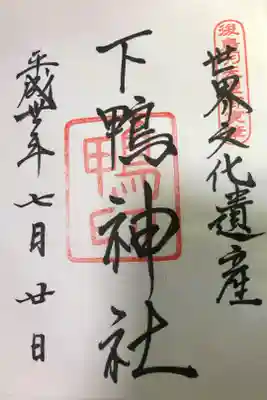 世界文化遺産
下鴨神社
鴨
平成卅年七月廿日